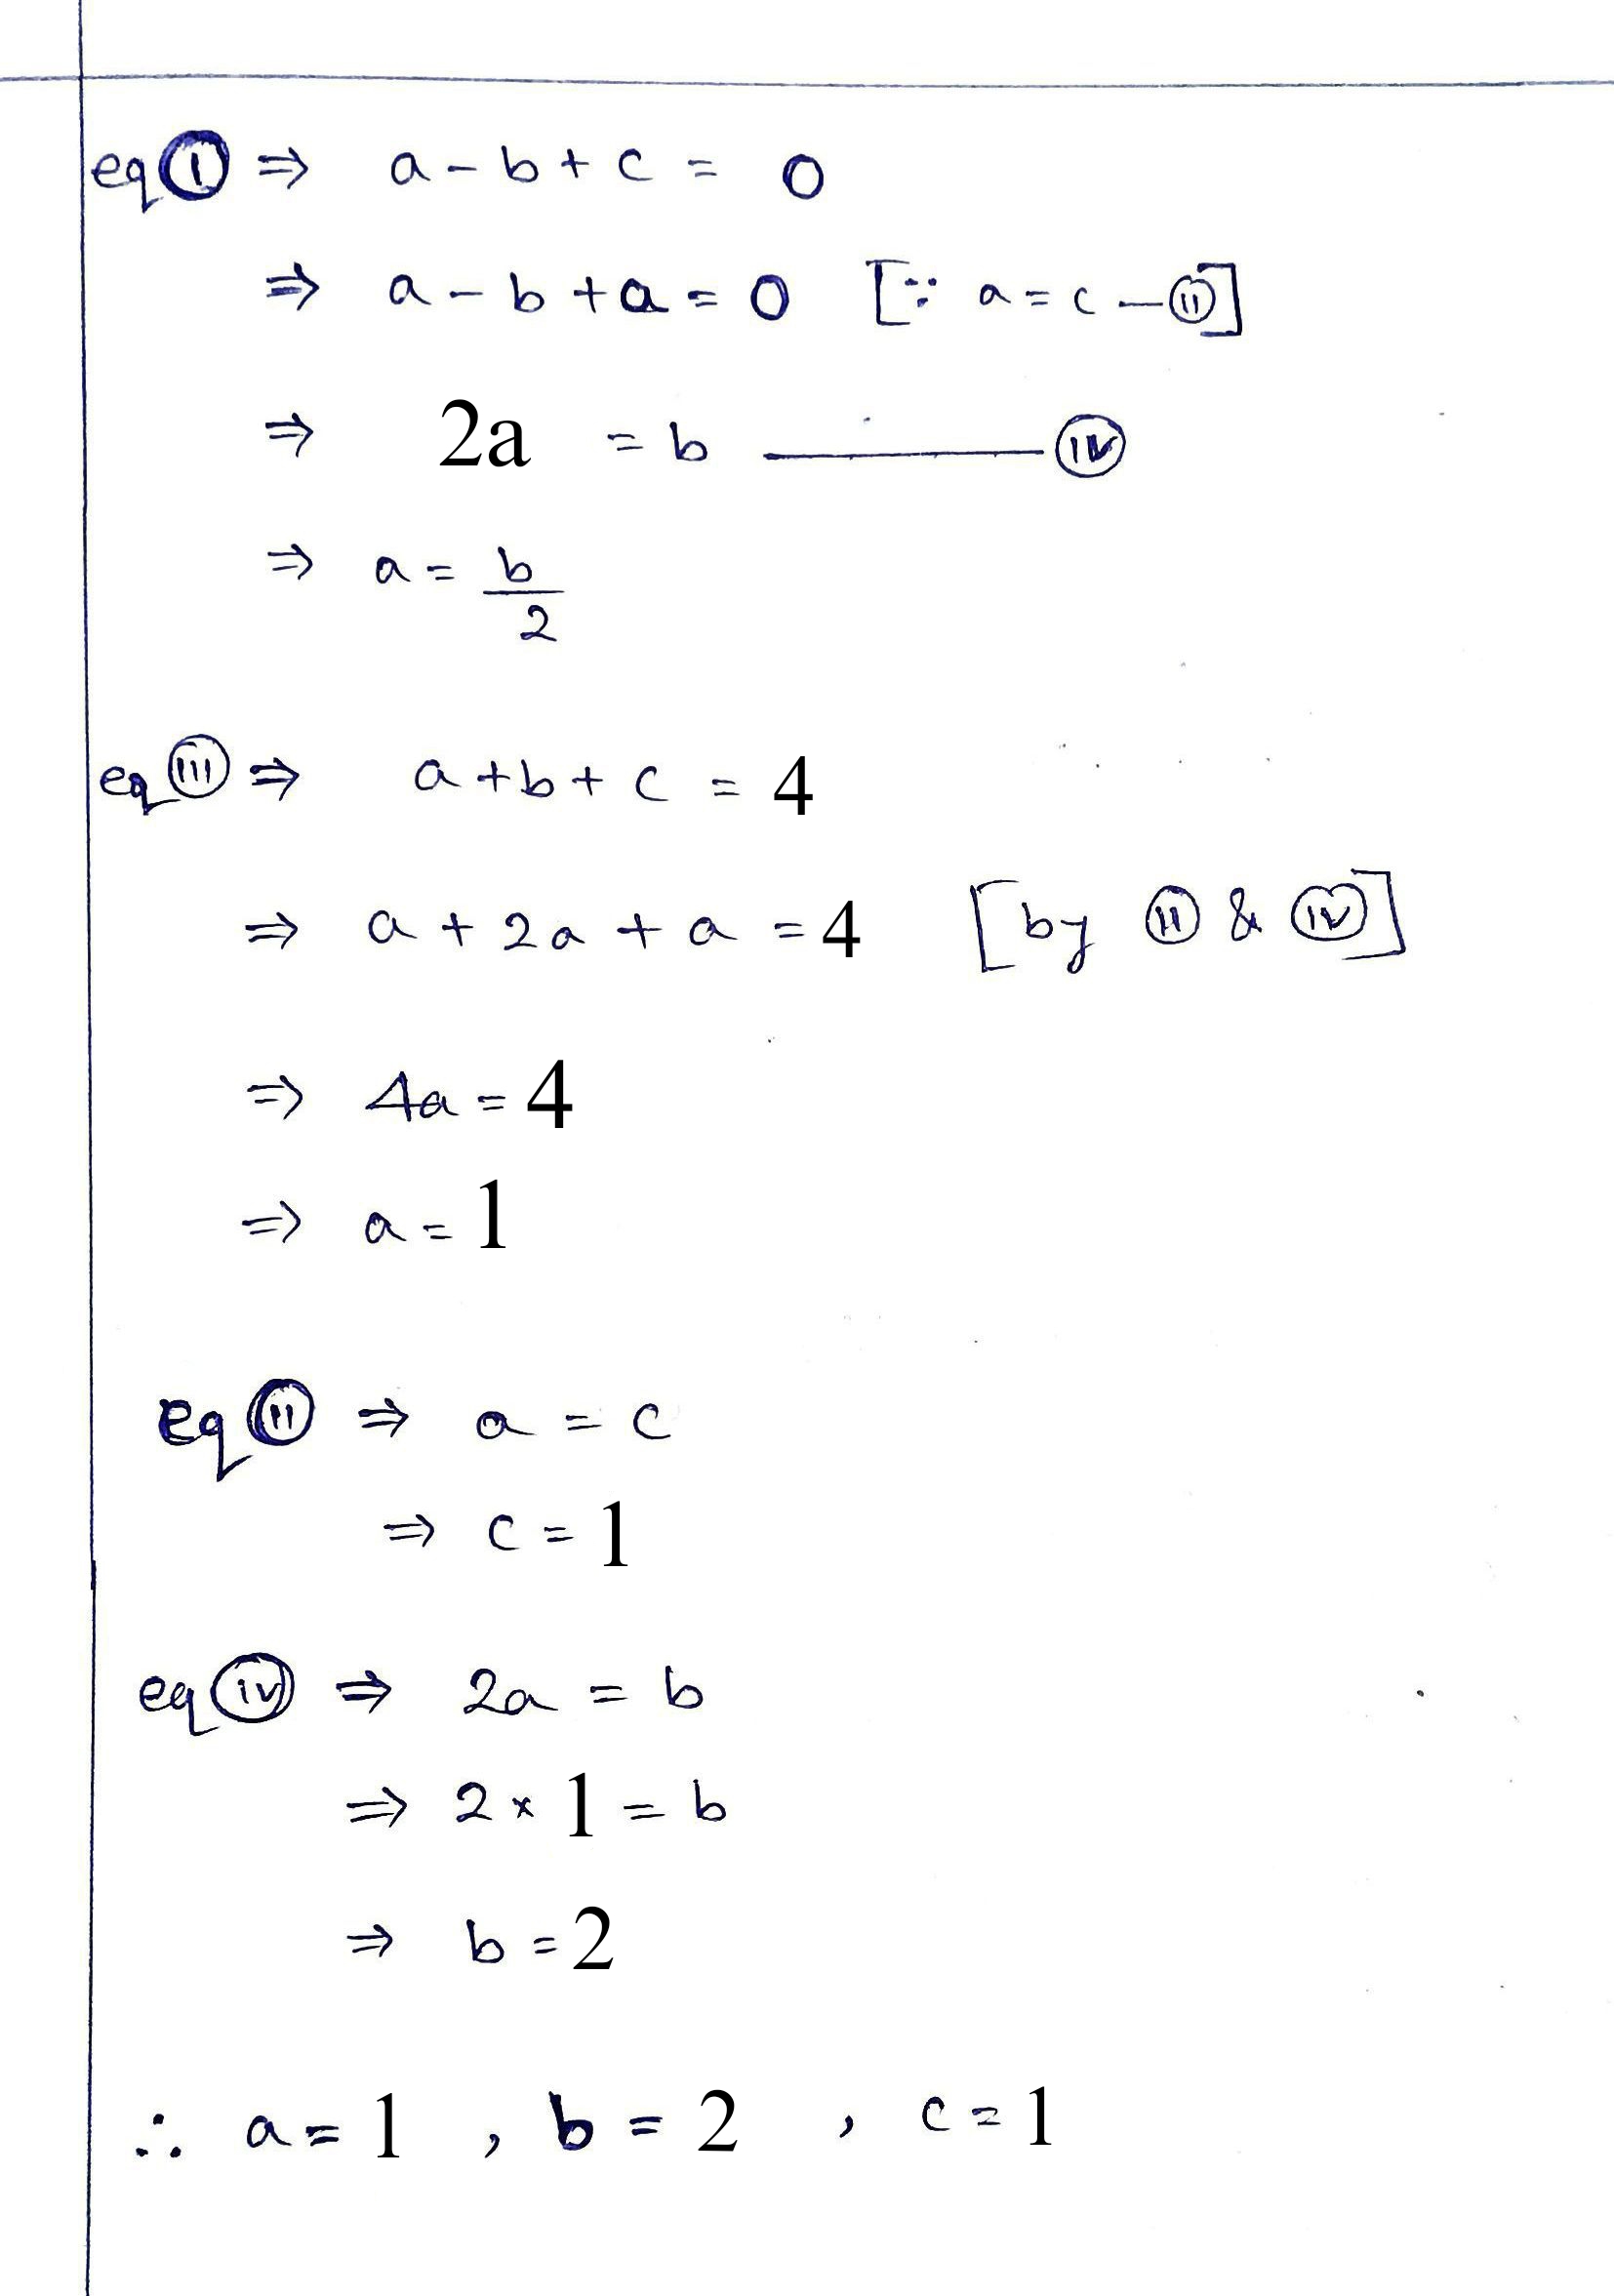 eq (i) ⇒ a - b + c = 0
⇒ a - b + a = 0 [∵ a = c — (ii)]
⇒ 2a = b ——— (iv)
⇒ a = b/2
eq (iii) ⇒ a + b + c = 4
⇒ a + 2a + a = 4 [by (ii) & (iv)]
⇒ 4a = 4
⇒ a = 1
eq (ii) ⇒ a = c
⇒ c = 1
eq (iv) ⇒ 2a = b
⇒ 2 × 1 = b
⇒ b = 2
∴ a = 1 , b = 2 , c = 1